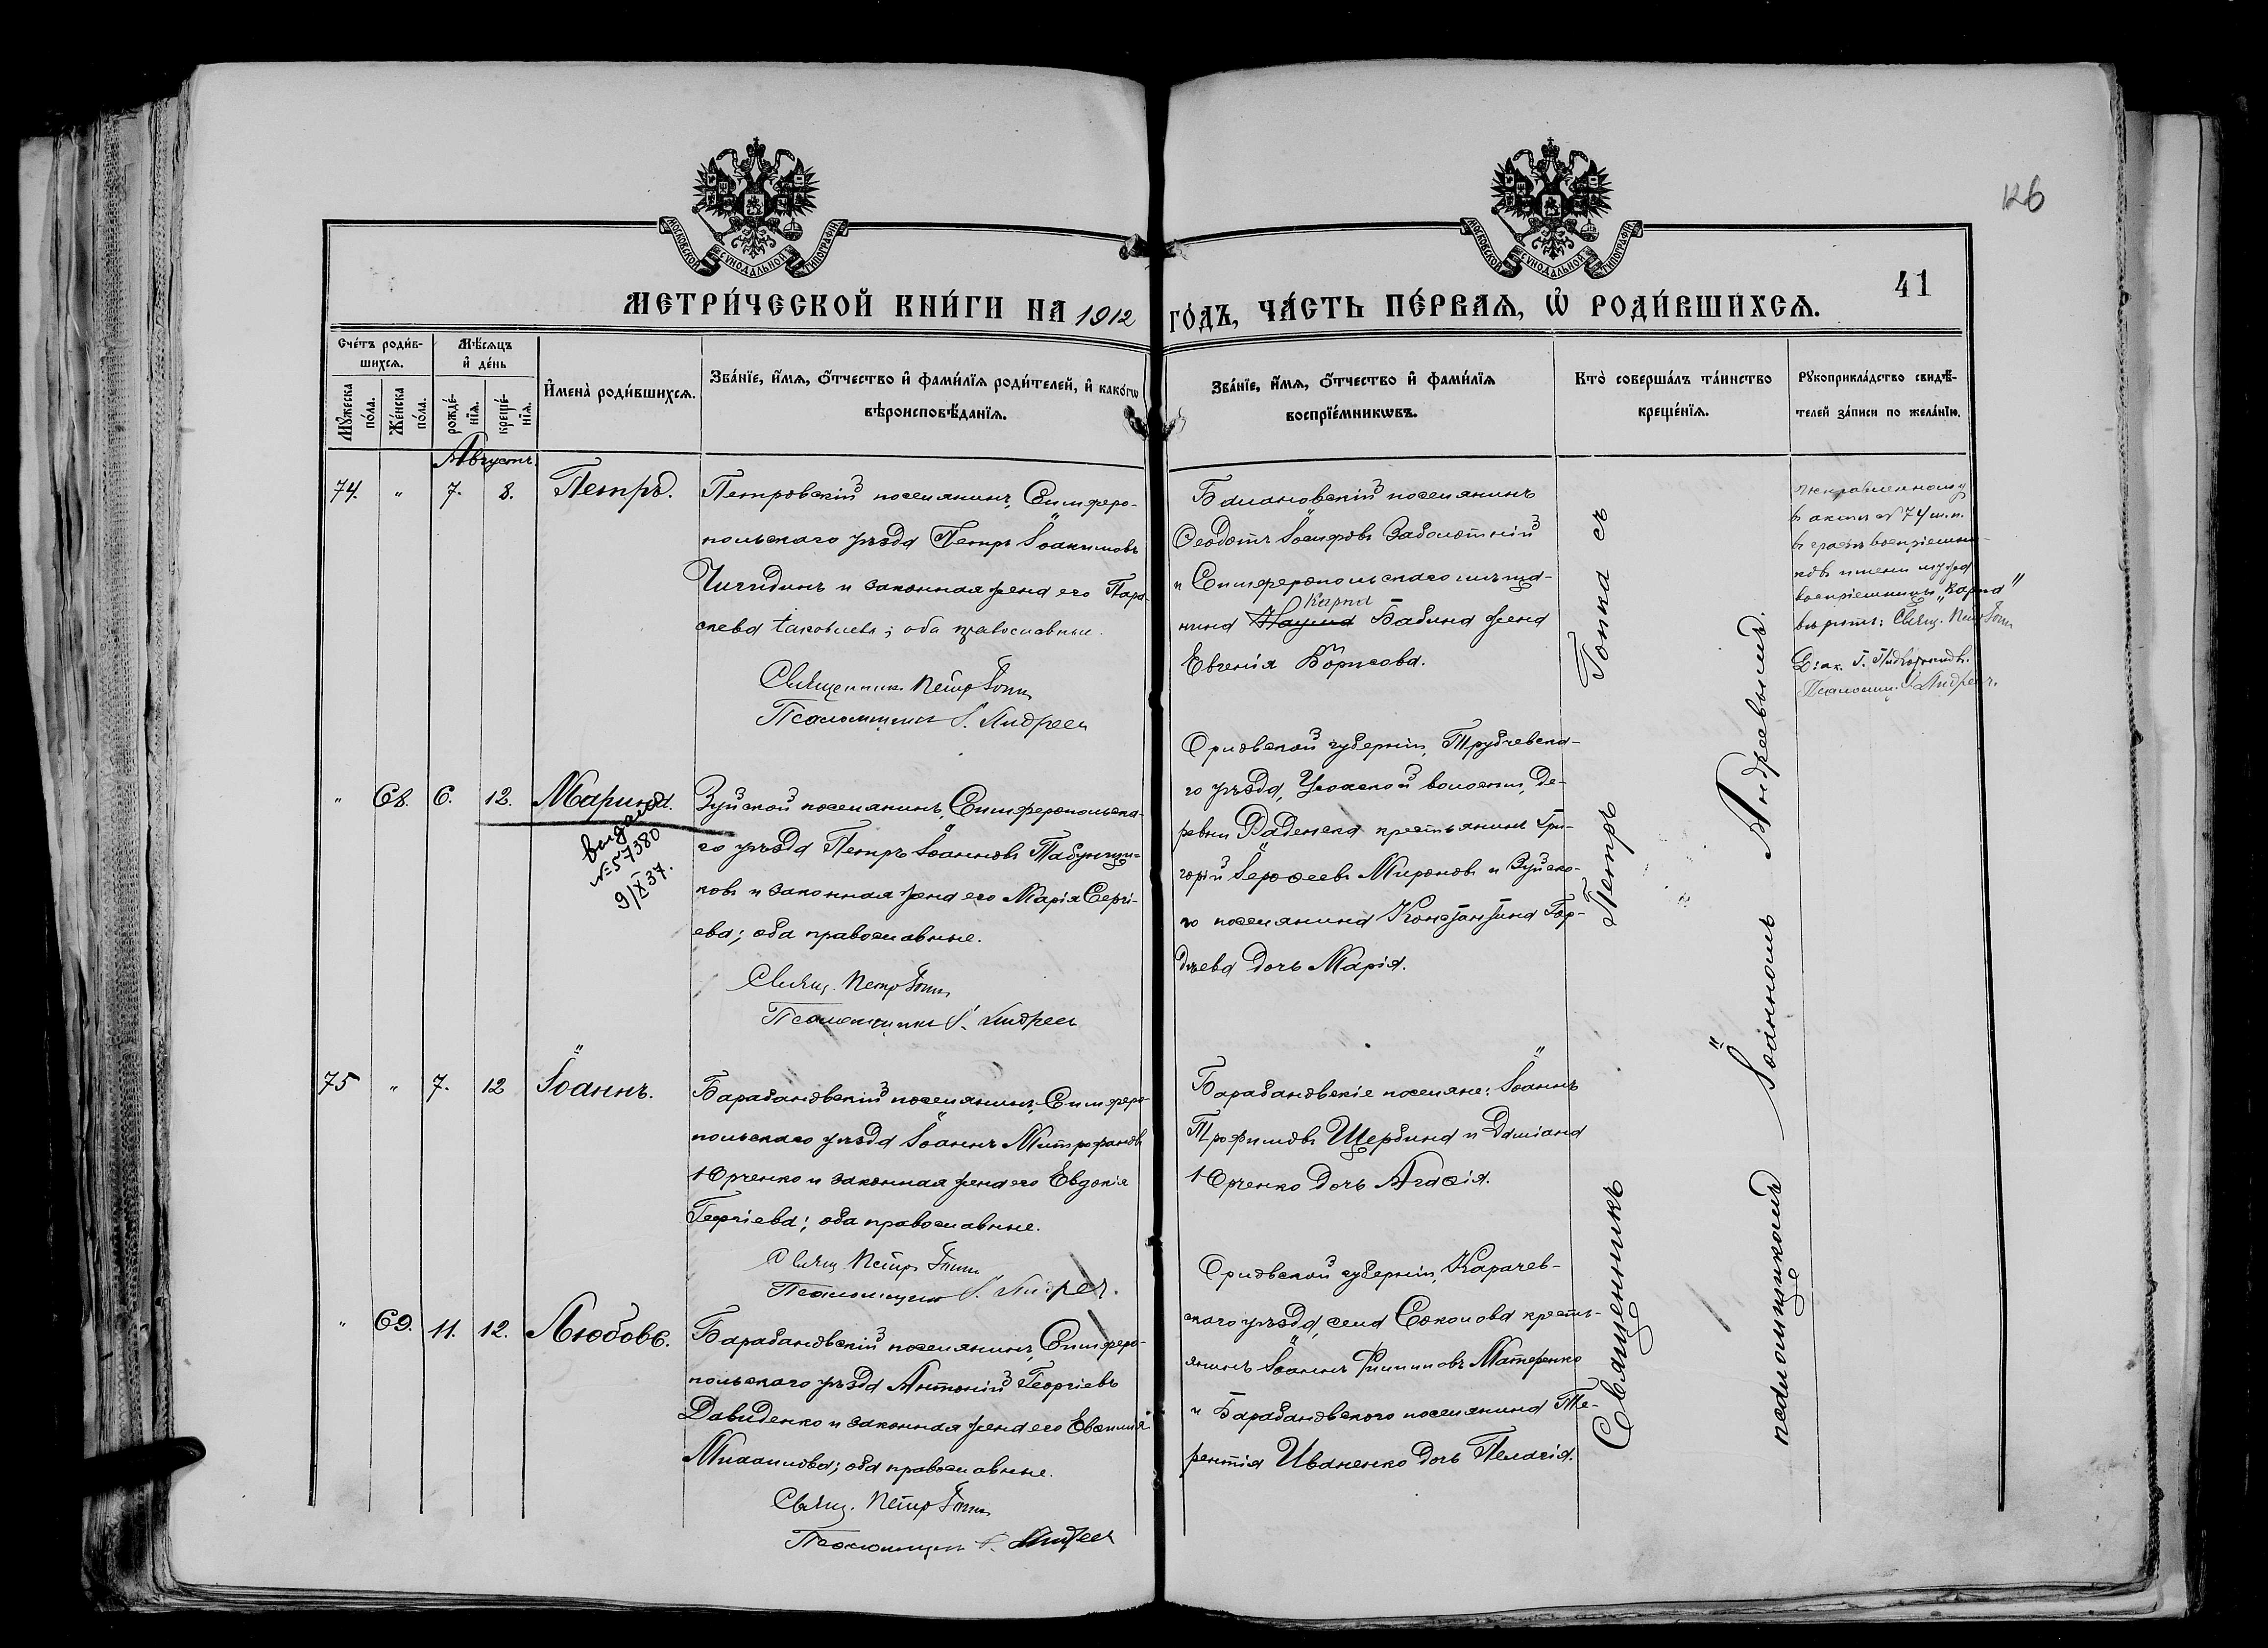 126
МОСКОВСКОЙ СУНОДАЛЬНОЙ ТИПОГРАФІИ
МОСКОВСКОЙ СУНОДАЛЬНОЙ ТИПОГРАФІИ
41
МЕТРИ́ЧЕСКОЙ КНИ́ГИ НА 1912 ГО́ДЪ, ЧА́СТЬ ПЕ́РВАѦ, Ѡ РОДИ́ВШИХСѦ.
Сче́тъ роди́в-
шихсѧ.
Мꙋжеска по́ла.
Же́нска по́ла.
Мѣ́сѧцъ
и҆ де́нь
рожде́-
нїѧ.
креще́-
нїѧ.
И҆мена̀ роди́вшихсѧ.
Зва́нїе, и҆́мѧ, ѻ҆́тчество и҆ фами́лїѧ роди́телей, и҆ како́гѡ
вѣроисповѣ́данїѧ.
Зва́нїе, и҆́мѧ, ѻ҆́тчество и҆ фами́лїѧ
воспрїе́мникѡвъ.
Кто̀ соверша́лъ та́инство
креще́нїѧ.
Рꙋкоприкла́дство свидѣ́-
телей за́писи по жела́нїю.
Августъ.
74. " 7. 8. Петръ.
Петровскій поселянинъ, Симферо-
польскаго уѣзда Петръ Іоакимовъ
Чигидинъ и законная жена его Пара-
скева Іаковлева; оба православные.
Священникъ Петръ Гопка
Псаломщикъ І. Андреевъ
Балановскій поселянинъ
Ѳеодотъ Іосифовъ Заболотній
и Симферопольскаго мѣща-
Карпа
нина Наума Бабина жена
Евгенія Борисова.
въ актѣ № 74 м. п.
въ графѣ воспріемни-
ковъ имени мужа
воспріемницы „Карпа"
вѣрить: Свящ. Петръ Гопка
Псаломщ. І. Андреевъ.
" 68. 6. 12. Марина.
выдано
№ 57380
9/X 37.
Зуйской поселянинъ, Симферопольска-
го уѣзда Петръ Іоанновъ Табунщи-
ковъ и законная жена его Марія Сергі-
ева; оба православные.
Свящ. Петръ Гопка
Псаломщикъ І. Андреевъ
Орловской губерніи, Трубчевска-
го уѣзда, волости, де-
ревни Раденска крестьянинъ Гри-
горій Іероѳеевъ Мироновъ и Зуйско-
го поселянина Константина Гор-
дѣева дочь Марія.
75 " 7. 12 Іоаннъ.
Барабановскій поселянинъ, Симферо-
польскаго уѣзда Іоаннъ Митрофановъ
Юрченко и законная жена его Евдокія
Георгіева; оба православные.
Свящ. Петръ Гопка
Псаломщикъ І. Андреевъ.
Барабановскіе поселяне: Іоаннъ
Трофимовъ Щербина и Даміана
Юрченко дочь Агаѳія.
" 69. 11. 12. Любовь.
Барабановскій поселянинъ, Симферо-
польскаго уѣзда Антоній Георгіевъ
Давиденко и законная жена его Евѳимія
Михаилова; оба православные.
Свящ. Петръ Гопка
Псаломщикъ І. Андреевъ
Орловской губерніи, Карачев-
скаго уѣзда, села Соколова кресть-
янинъ Іоаннъ Филипповъ Матеренко
и Барабановскаго поселянина Те-
рентія Иваненко дочь Пелагія.
Священникъ Петръ Гопка съ
псаломщикомъ Іоанномъ Андреевымъ.